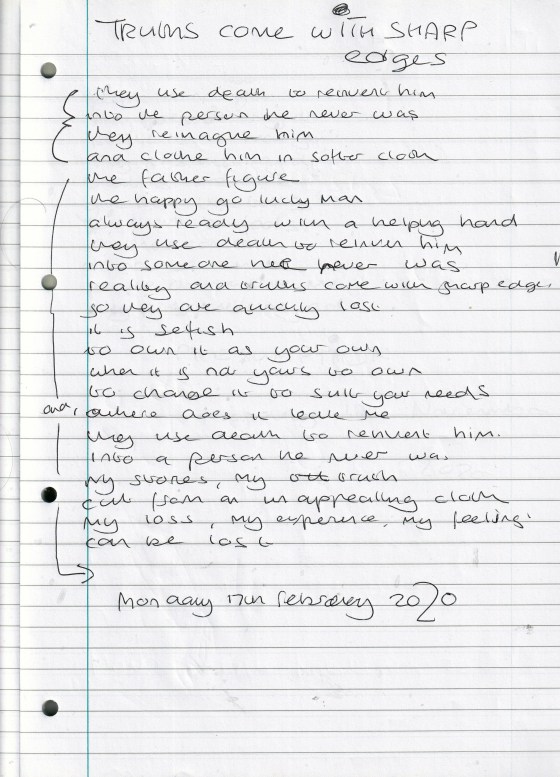 TRUTHS COME WITH SHARP
edges
they use death to reinvent him
into the person he never was
they reimagine him
and clothe him in softer cloth
the father figure
the happy go lucky man
always ready with a helping hand
they use death to reinvent him
into someone he never was
reality and truths come with sharp edges
so they are quickly lost
it is selfish
to own it as your own
when it is not yours to own
to change it to suit your needs
and, where does it leave me
they use death to reinvent him.
into a person he never was
my stories, my truth
cut from an unappealing cloth
my loss, my experience, my feelings
can be lost
Monday 17th February 2020